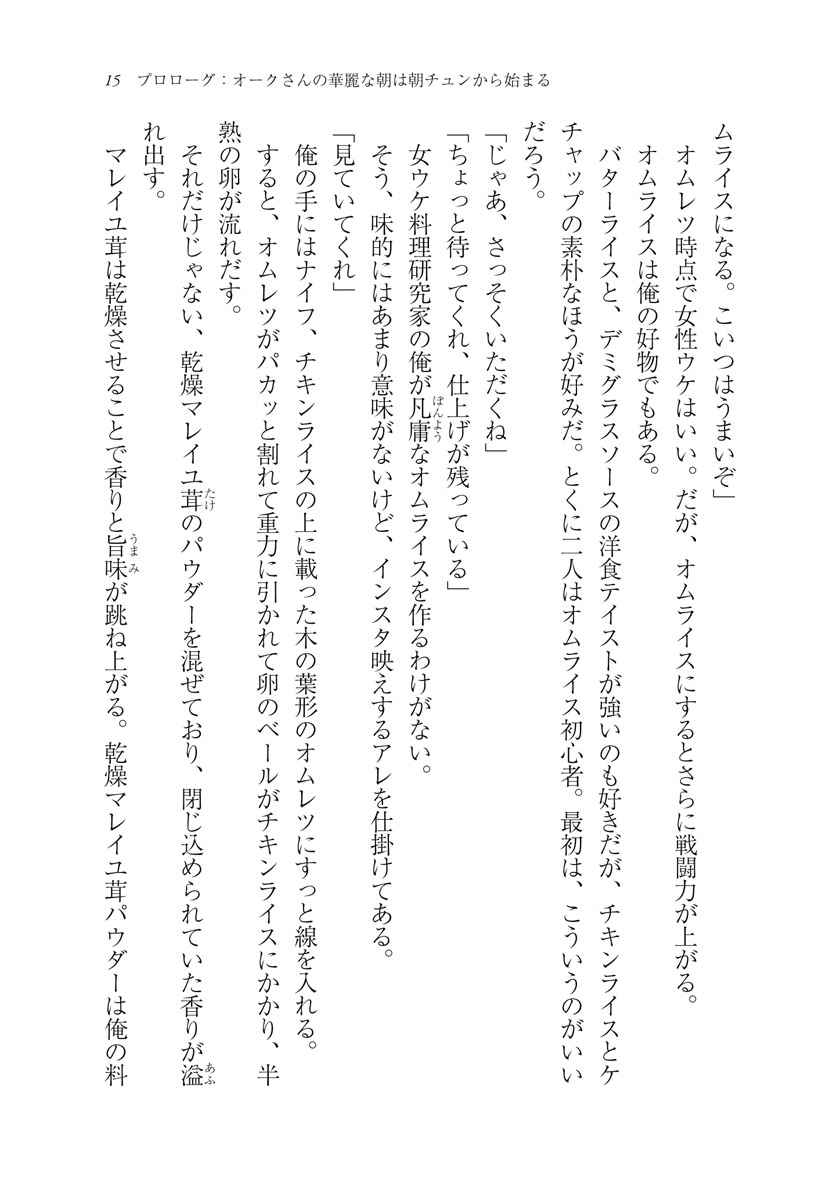 15 プロローグ：オークさんの華麗な朝は朝チュンから始まる
ムライスになる。こいつはうまいぞ」
オムレツ時点で女性ウケはいい。だが、オムライスにするとさらに戦闘力が上がる。
オムライスは俺の好物でもある。
バターライスと、デミグラスソースの洋食テイストが強いのも好きだが、チキンライスとケ
チャップの素朴なほうが好みだ。とくに二人はオムライス初心者。最初は、こういうのがいい
だろう。
「じゃあ、さっそくいただくね」
「ちょっと待ってくれ、仕上げが残っている」
女ウケ料理研究家の俺が凡庸なオムライスを作るわけがない。
そう、味的にはあまり意味がないけど、インスタ映えするアレを仕掛けてある。
「見ていてくれ」
俺の手にはナイフ、チキンライスの上に載った木の葉形のオムレツにすっと線を入れる。
すると、オムレツがパカッと割れて重力に引かれて卵のベールがチキンライスにかかり、半
熟の卵が流れだす。
それだけじゃない、乾燥マレイユ茸のパウダーを混ぜており、閉じ込められていた香りが溢
れ出す。
マレイユ茸は乾燥させることで香りと旨味が跳ね上がる。乾燥マレイユ茸パウダーは俺の料